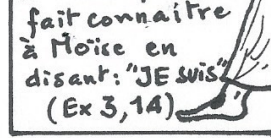 fait connaitre
à Moïse en
disant: "JE SUIS"
(Ex 3,14)